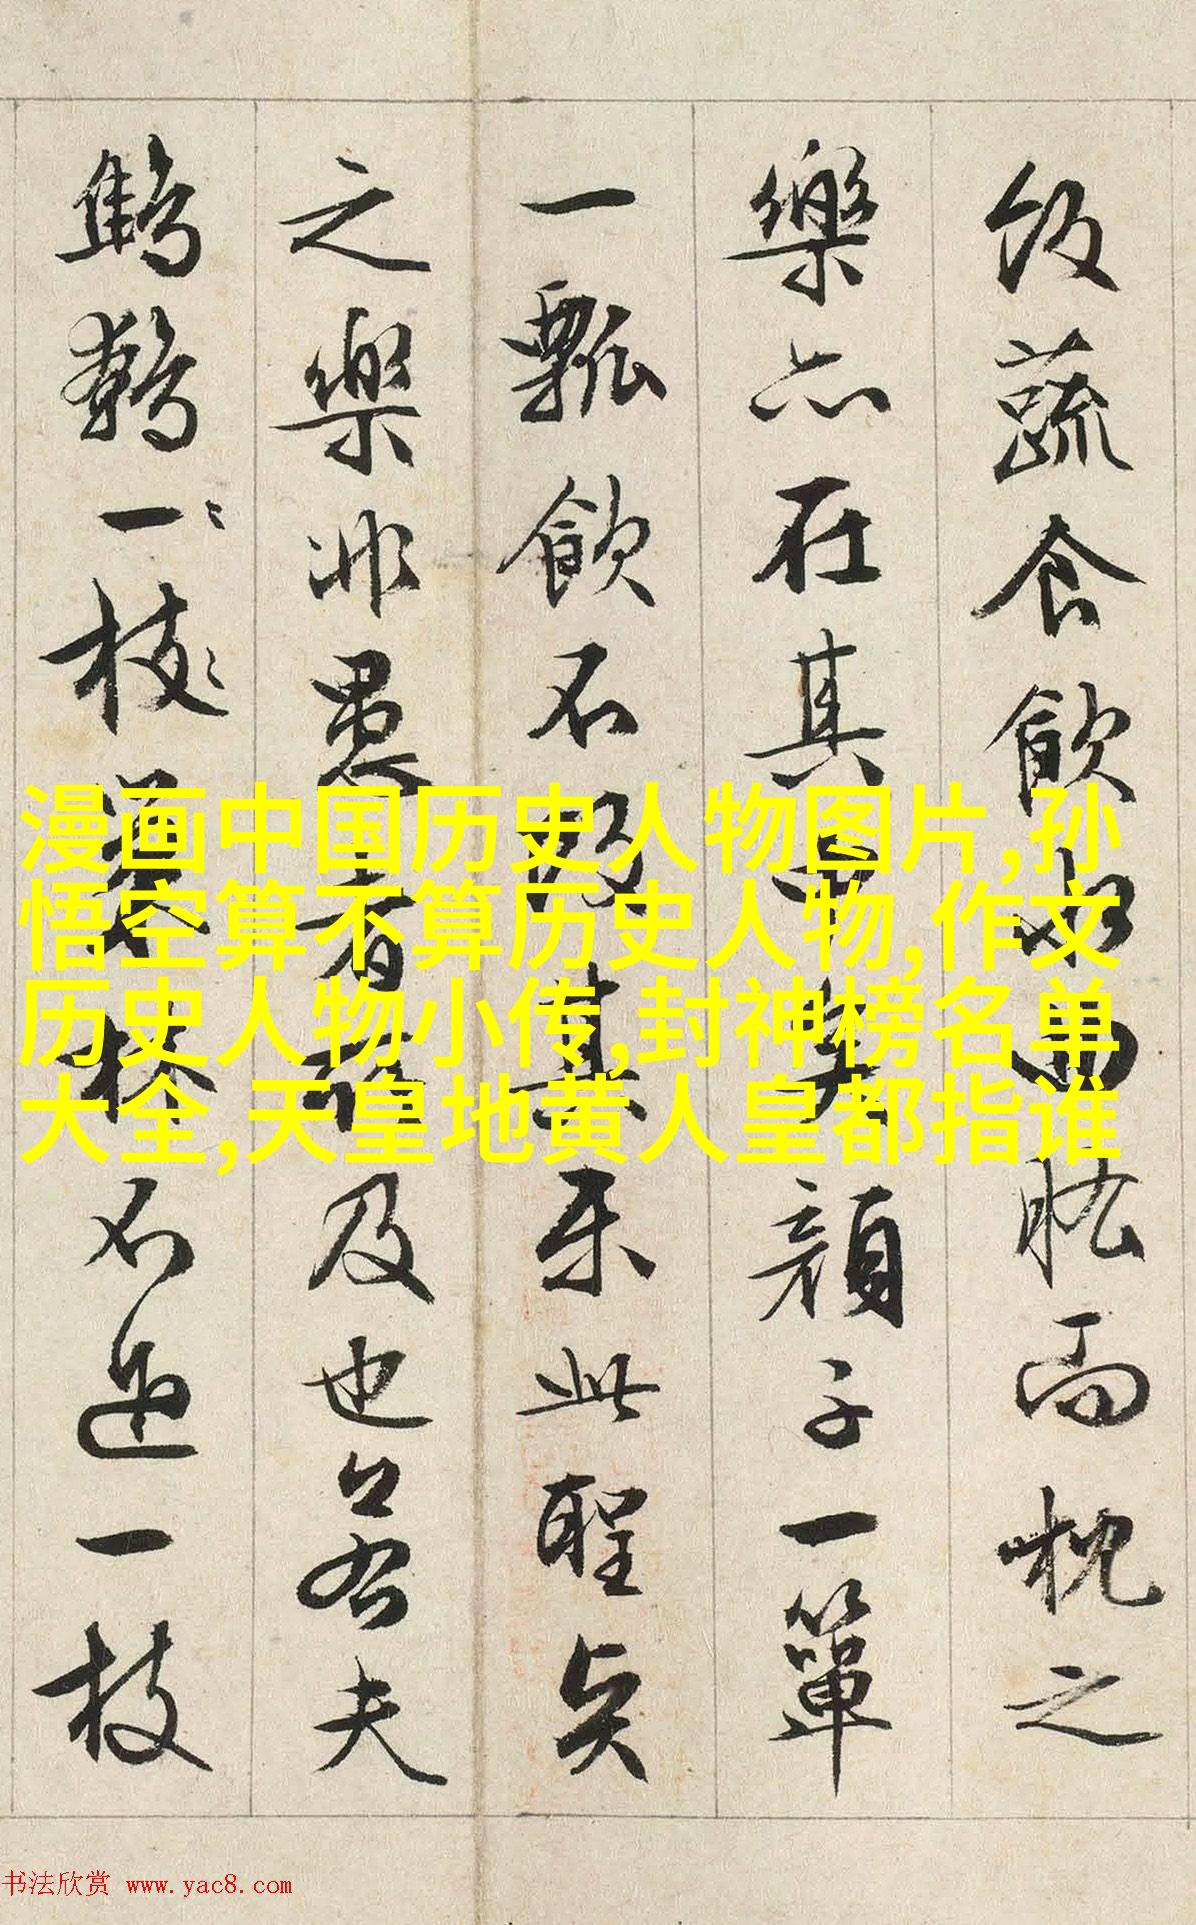 飯蔬食飲水曲肱而枕之
樂亦在其中矣顏子一簞
一瓢飲不改其乐此聖賢
之樂非愚者所及也若夫
鷦鷯一枝巢林不過一枝
漫画中国历史人物图片,孙
悟空算不算历史人物,作文
历史人物小传,封神榜名单
大全,天皇地黄人皇都指谁
书法欣赏 www.yac8.com